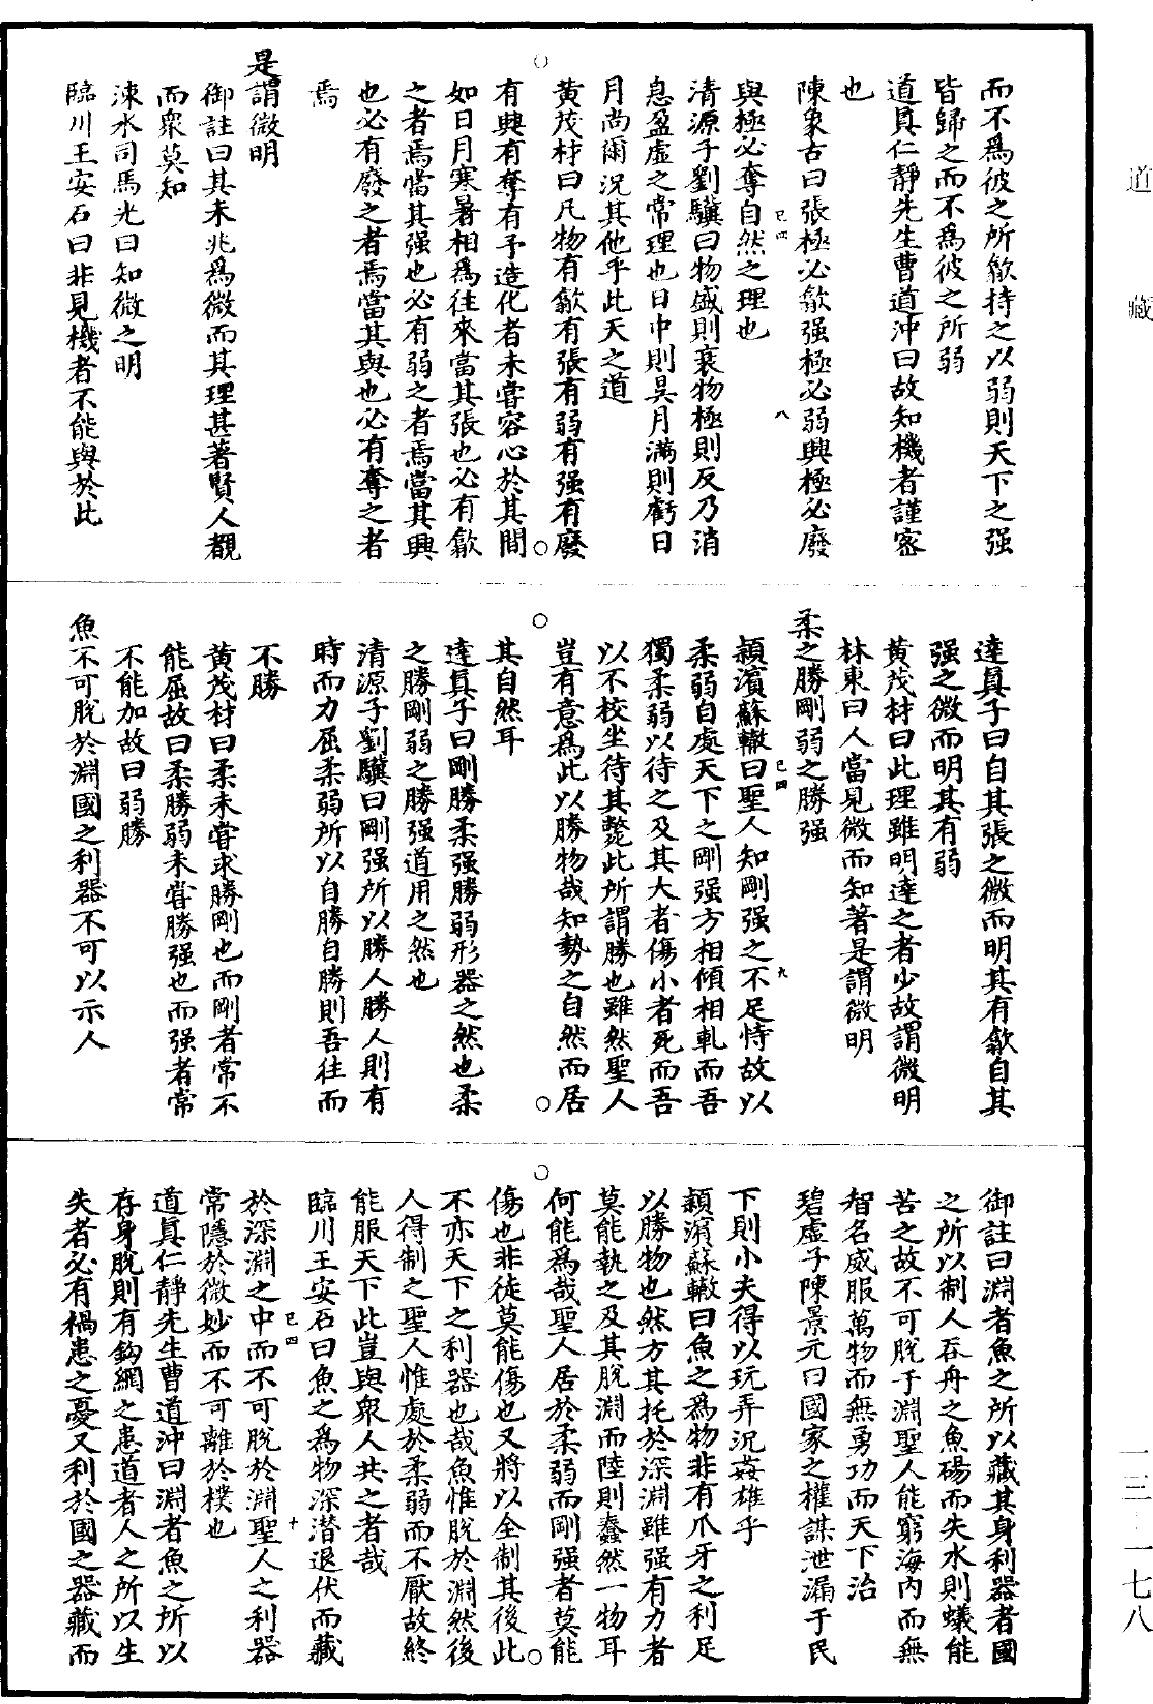 道藏
而不爲彼之所歙持之以弱則天下之强
皆歸之而不爲彼之所弱
道真仁靜先生曹道沖曰故知機者謹密
也
陳象古曰張極必歙强極必弱興極必廢
與極必奪自然之理也
清源子劉驥曰物盛則衰物極則反乃消
息盈虛之常理也日中則昃月滿則虧日
月尚爾況其他乎此天之道
黃茂材曰凡物有歙有張有弱有强有廢
有興有奪有予造化者未甞容心於其間
如日月寒暑相爲往來當其張也必有歙
之者焉當其强也必有弱之者焉當其興
也必有廢之者焉當其與也必有奪之者
焉
是謂微明
御註曰其未兆爲微而其理甚著賢人覩
而衆莫知
涑水司馬光曰知微之明
臨川王安石曰非見機者不能與於此
已四
八
達真子曰自其張之微而明其有歙自其
强之微而明其有弱
黃茂材曰此理雖明達之者少故謂微明
林東曰人當見微而知著是謂微明
柔之勝剛弱之勝强
潁濱蘇轍曰聖人知剛强之不足恃故以
柔弱自處天下之剛强方相傾相軋而吾
獨柔弱以待之及其大者傷小者死而吾
以不校坐待其斃此所謂勝也雖然聖人
豈有意爲此以勝物哉知勢之自然而居
其自然耳
達真子曰剛勝柔强勝弱形器之然也柔
之勝剛弱之勝强道用之然也
清源子劉驥曰剛强所以勝人勝人則有
時而力屈柔弱所以自勝自勝則吾往而
不勝
黃茂材曰柔未甞求勝剛也而剛者常不
能屈故曰柔勝弱未甞勝强也而强者常
不能加故曰弱勝
魚不可脫於淵國之利器不可以示人
已四
九
御註曰淵者魚之所以藏其身利器者國
之所以制人吞舟之魚碭而失水則蟻能
苦之故不可脫于淵聖人能窮海內而無
智名威服萬物而無勇功而天下治
碧虛子陳景元曰國家之權謀泄漏于民
下則小夫得以玩弄況姦雄乎
潁濱蘇轍曰魚之爲物非有爪牙之利足
以勝物也然方其托於深淵雖强有力者
莫能執之及其脫淵而陸則蠢然一物耳
何能爲哉聖人居於柔弱而剛强者莫能
傷也非徒莫能傷也又將以全制其後此
不亦天下之利器也哉魚惟脫於淵然後
人得制之聖人惟處於柔弱而不厭故終
能服天下此豈與衆人共之者哉
臨川王安石曰魚之爲物深潛退伏而藏
於深淵之中而不可脫於淵聖人之利器
常隱於微妙而不可離於樸也
道真仁靜先生曹道沖曰淵者魚之所以
存身脫則有鈎網之患道者人之所以生
失者必有禍患之憂又利於國之器藏而
已四
十
一三一七八